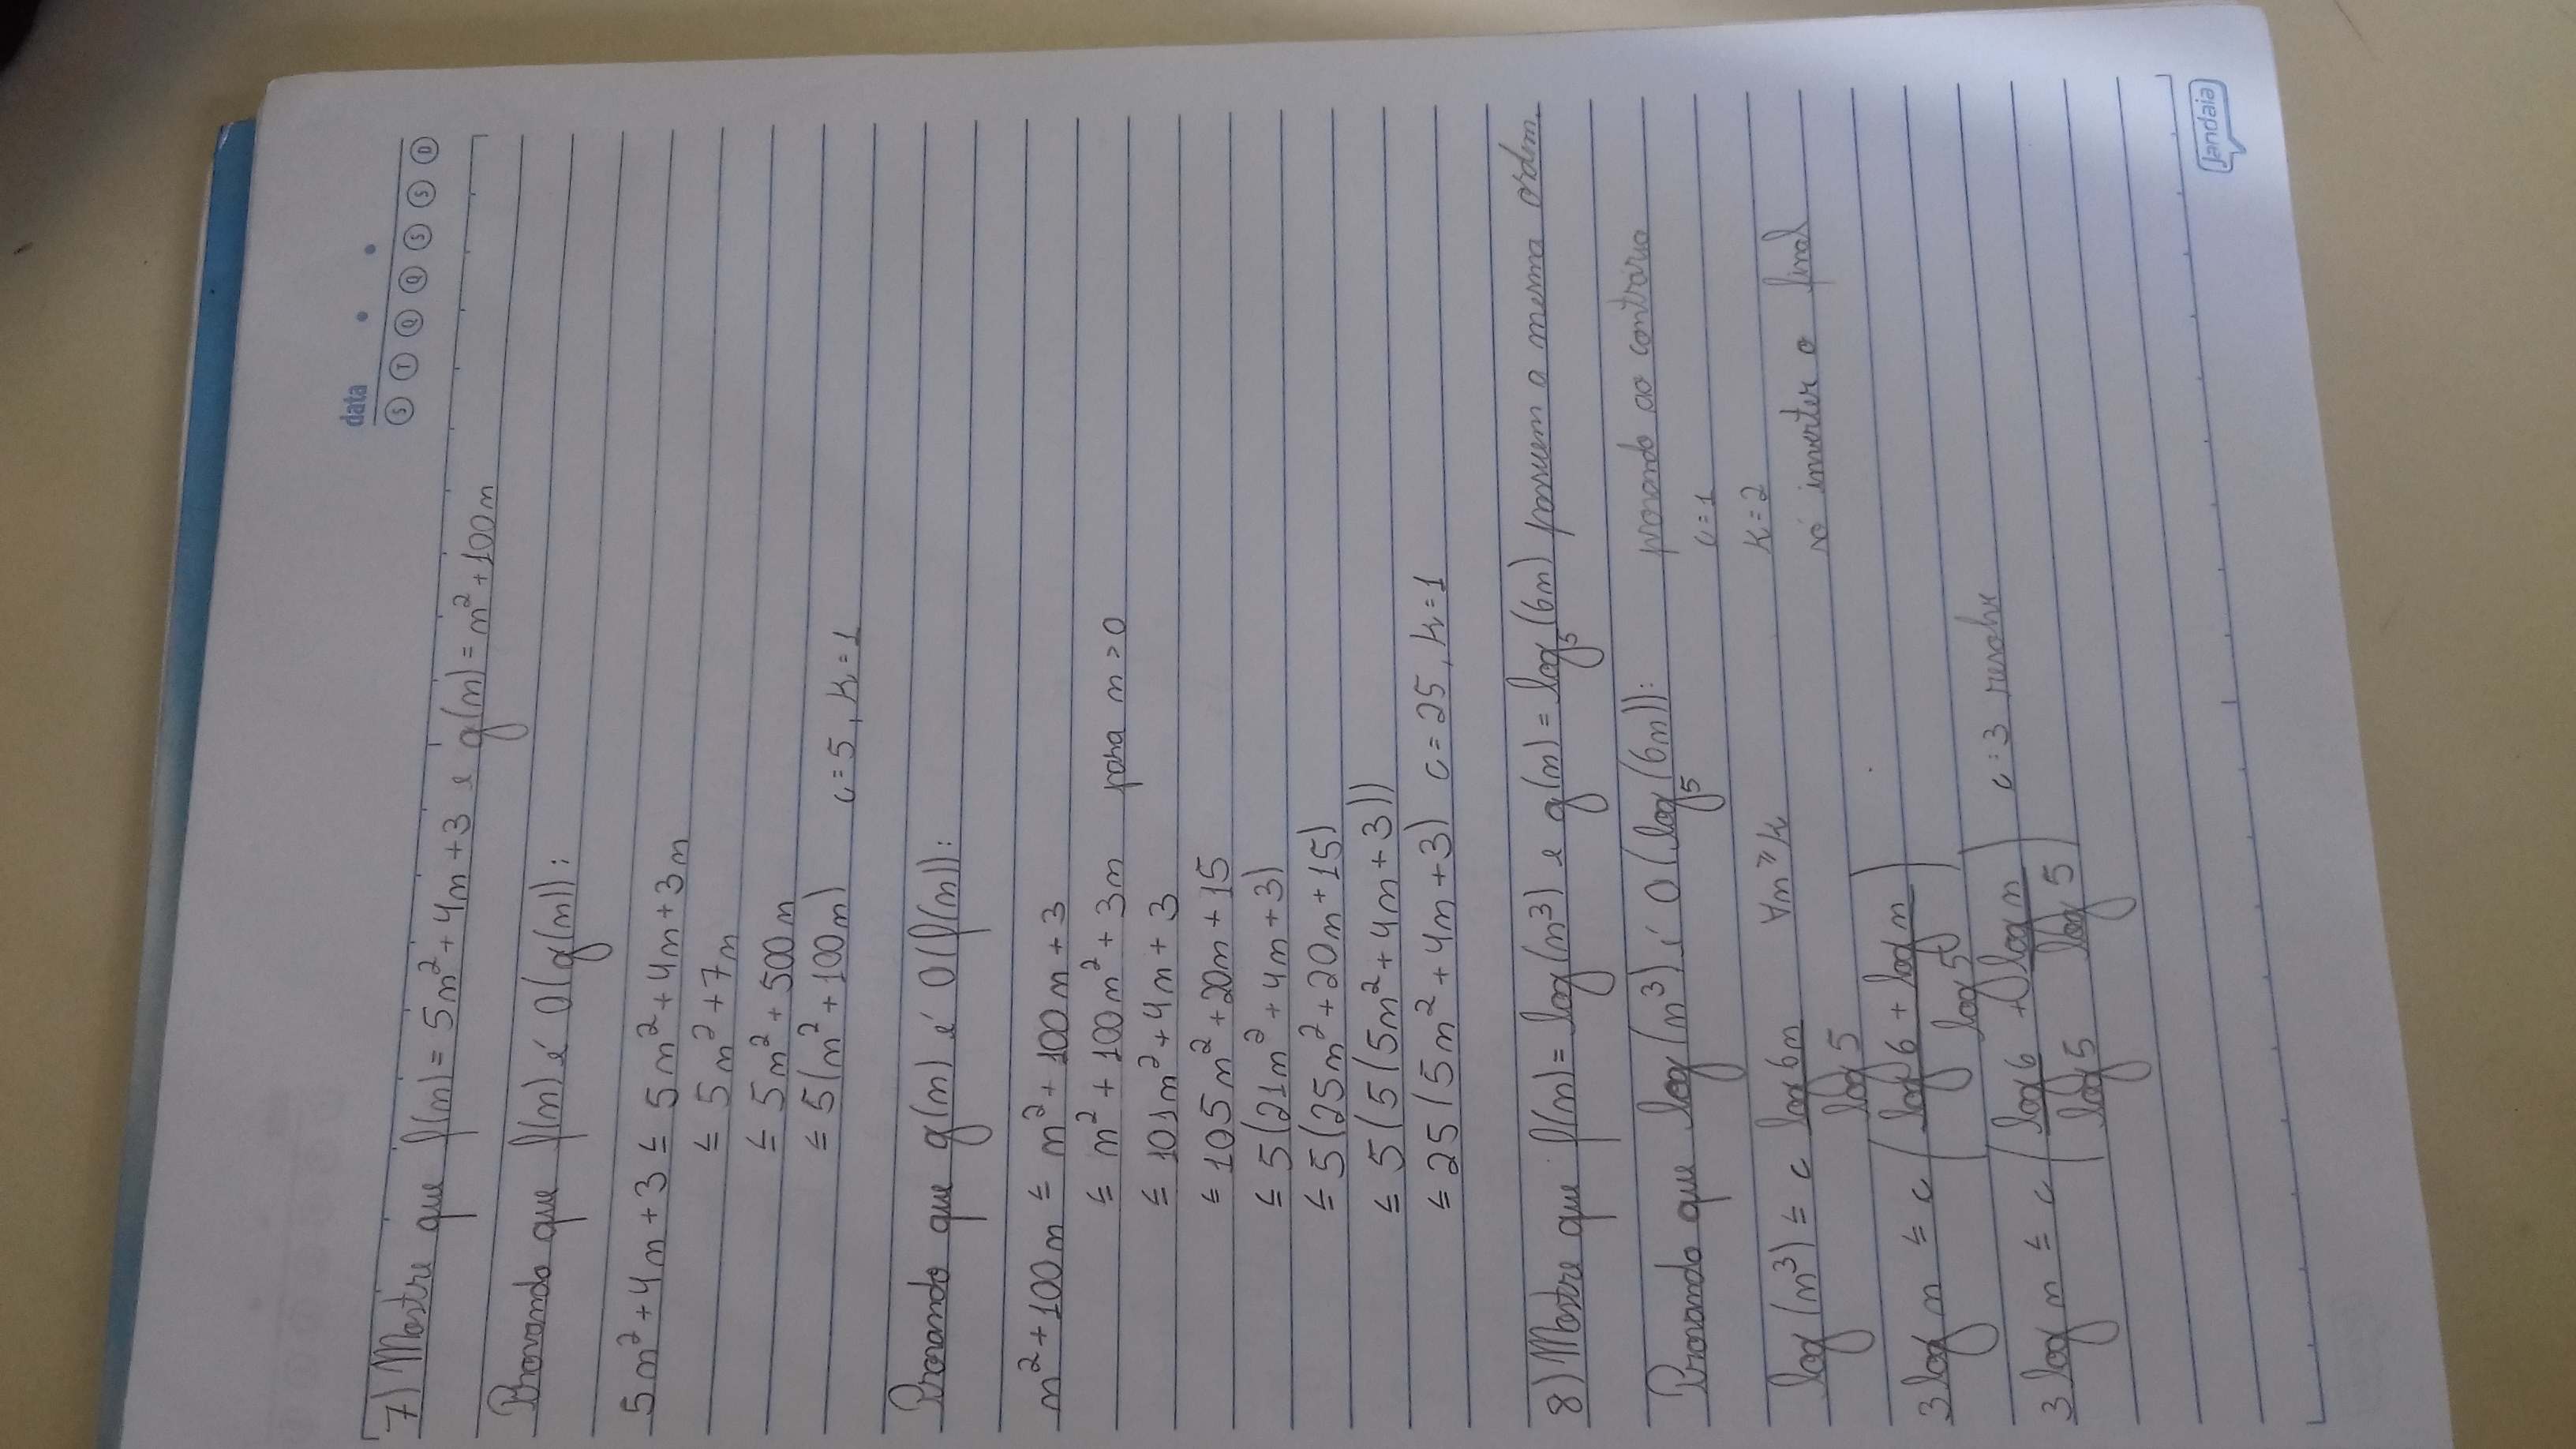 data
S T Q Q S S D
7) Mostre que f(n) = 5n² + 4n + 3 e g(n) = n² + 100n
Provando que f(n) é O(g(n)):
5n² + 4n + 3 ≤ 5n² + 4n + 3n
≤ 5n² + 7n
≤ 5n² + 500n
≤ 5(n² + 100n) c = 5, k = 1
Provando que g(n) é O(f(n)):
n² + 100n ≤ n² + 100n + 3
≤ n² + 100n² + 3n para n > 0
≤ 101n² + 4n + 3
≤ 105n² + 20n + 15
≤ 5(21n² + 4n + 3)
≤ 5(25n² + 20n + 15)
≤ 5(5(5n² + 4n + 3))
≤ 25(5n² + 4n + 3) c = 25, k = 1
8) Mostre que f(n) = log(n³) e g(n) = log₅(6n) possuem a mesma ordem.
Provando que log(n³) é O(log₅(6n)): provando ao contrário
c = 1
log(n³) ≤ c log 6n / log 5 ∀n ≥ k
k = 2
só inverter o final
3 log n ≤ c ( (log 6 + log n) / log 5 )
3 log n ≤ c ( log 6 / log 5 + log n / log 5 ) c = 3 resolve
Jandaia